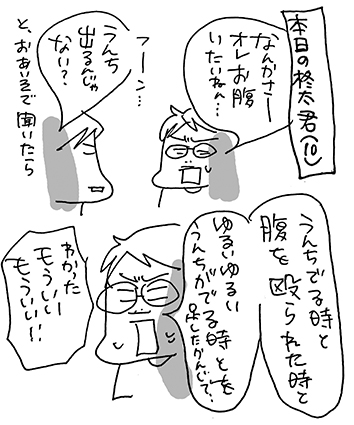 本日の柊太君(10)
なんかさー
オレお腹
いたいねん…
フーン…
うんち
出るんじゃ
ない?
と、おあいそで聞いたら
うんちでる時と
腹を殴られた時と
ゆるいゆるい
うんちがでる時とを
足したかんじで?
わかった
もういい
もういい!!